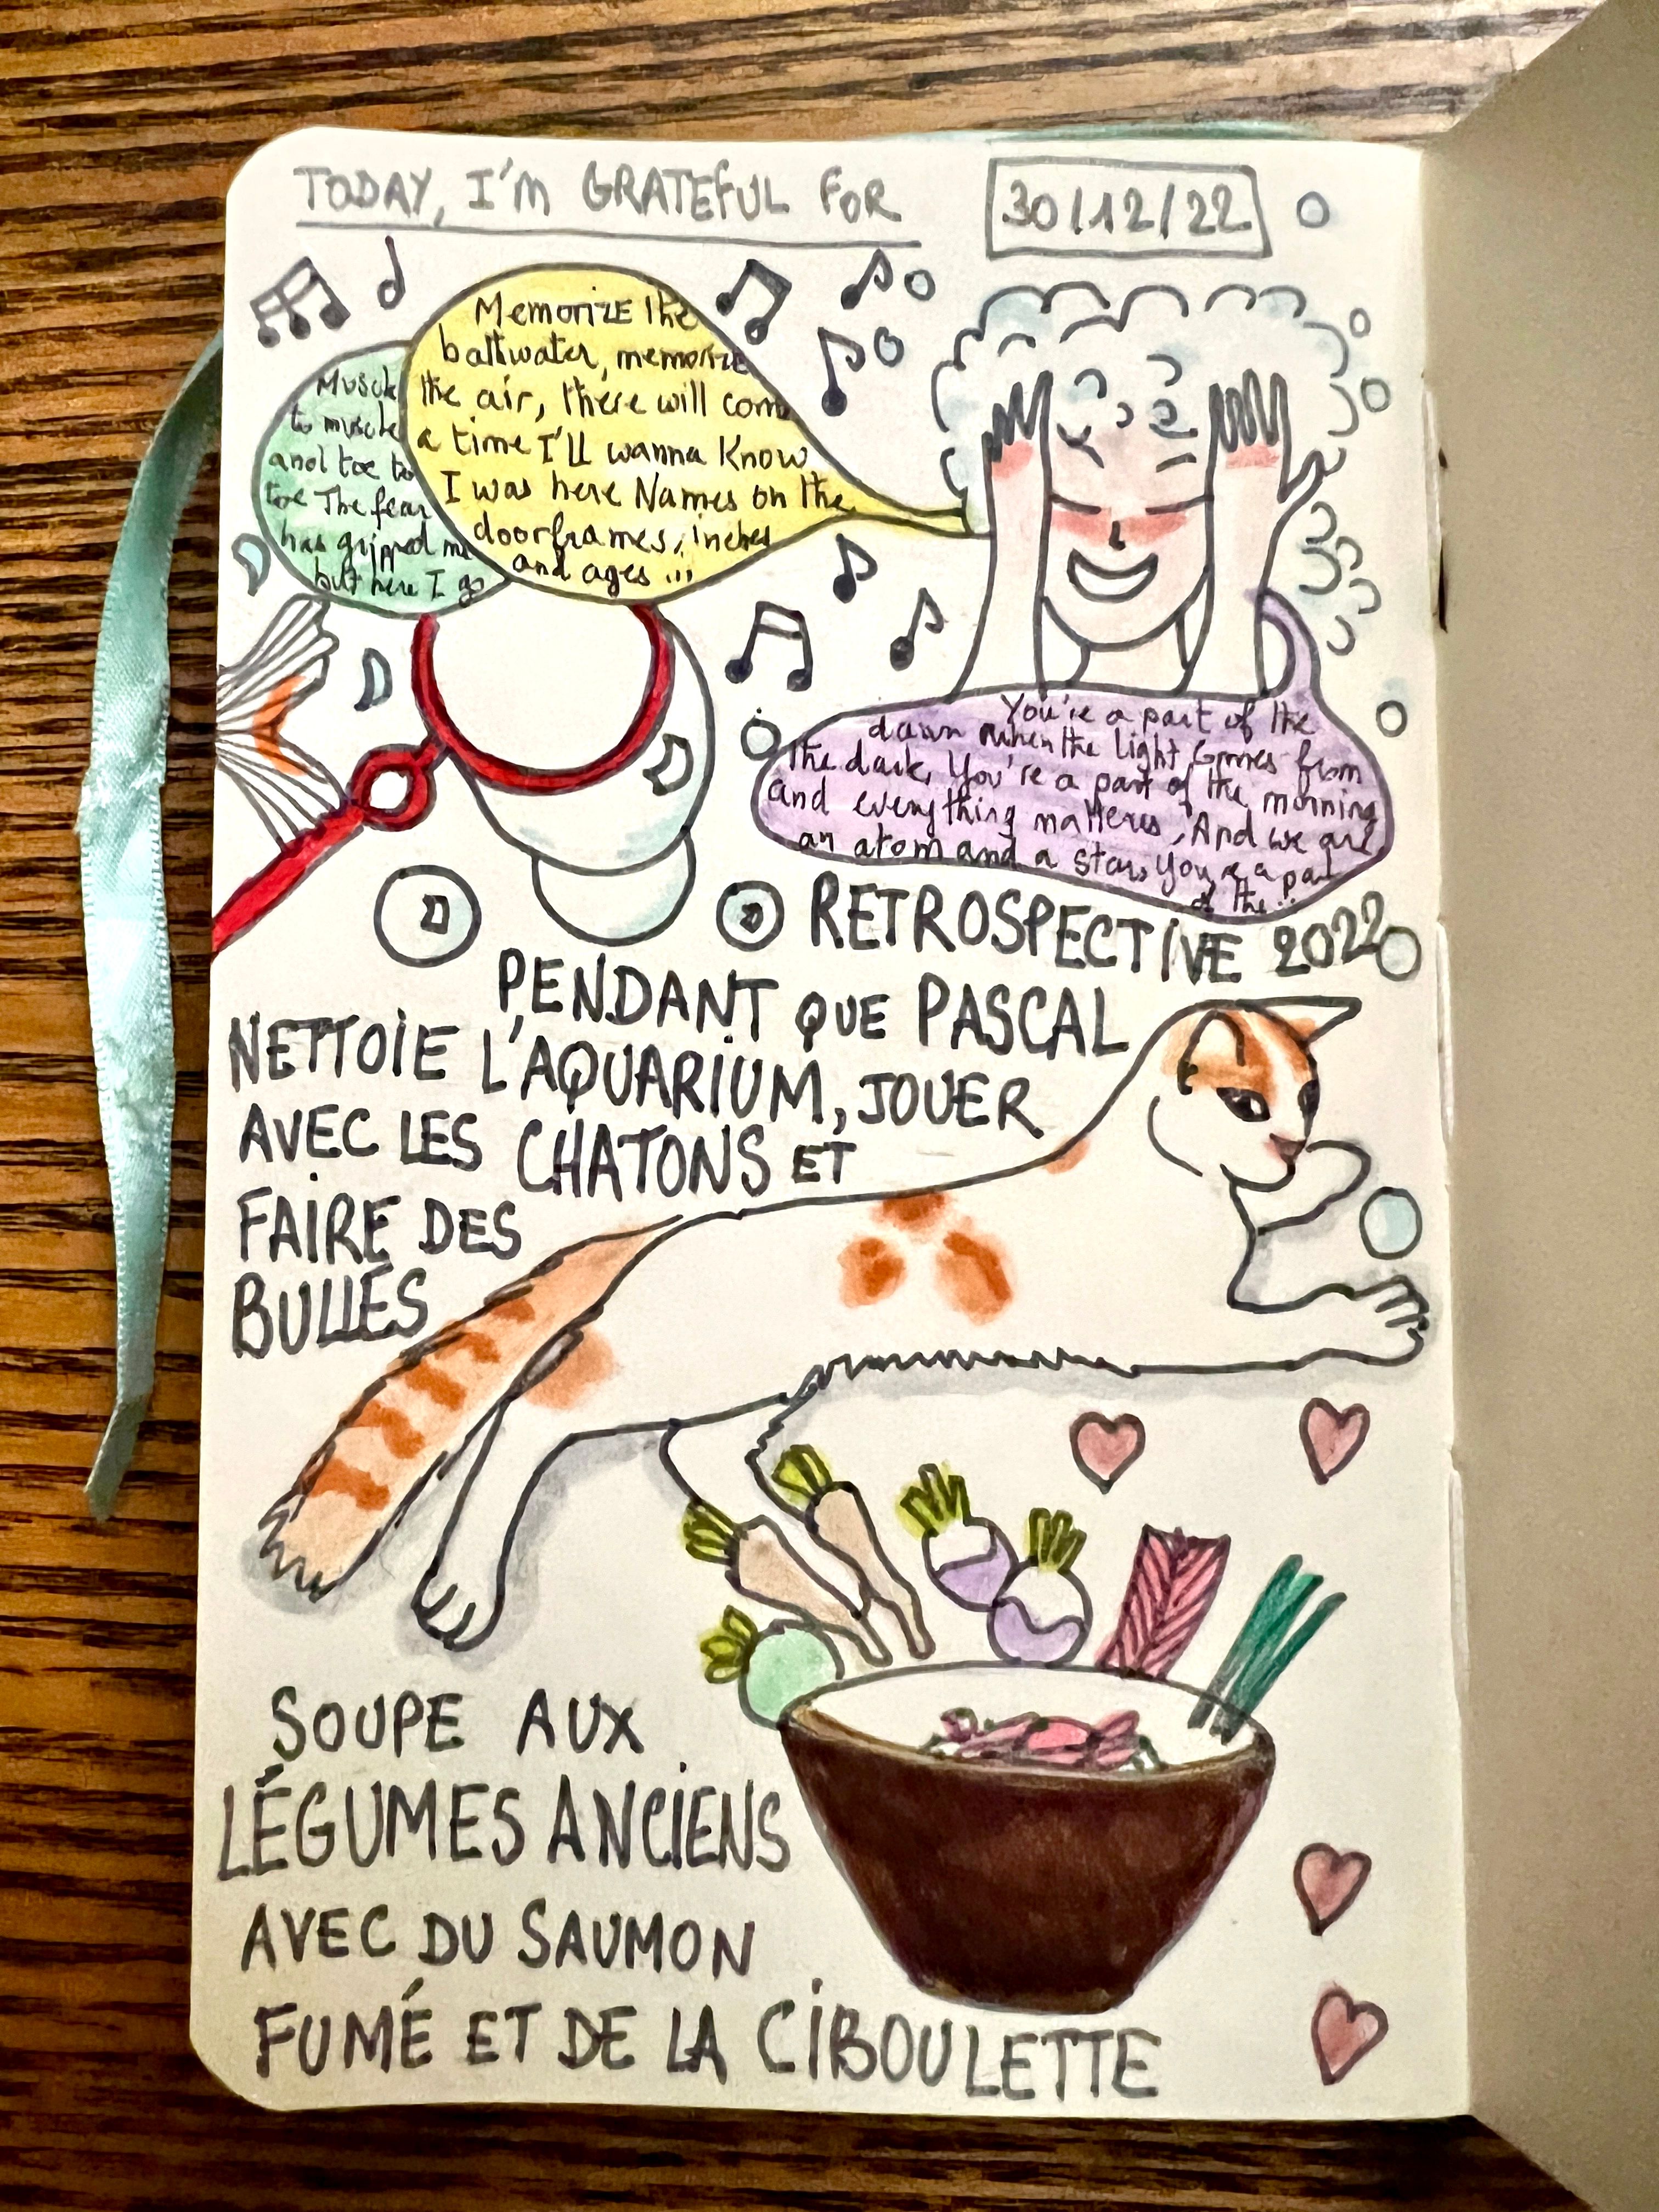 TODAY, I'M GRATEFUL FOR
30/12/22
Memorize the
bathwater, memorize
the air, there will come
a time I'll wanna Know
I was here Names on the
doorframes, inches
and ages ...
Muscle
to muscle
and toe to
toe The fear
has gripped me
but here I go
You're a part of the
dawn when the light comes from
the dark, You're a part of the morning
and everything matters, And we are
an atom and a star, You're a part
of the...
RETROSPECTIVE 2022
PENDANT QUE PASCAL
NETTOIE L'AQUARIUM, JOUER
AVEC LES CHATONS ET
FAIRE DES
BULLES
SOUPE AUX
LÉGUMES ANCIENS
AVEC DU SAUMON
FUMÉ ET DE LA CIBOULETTE